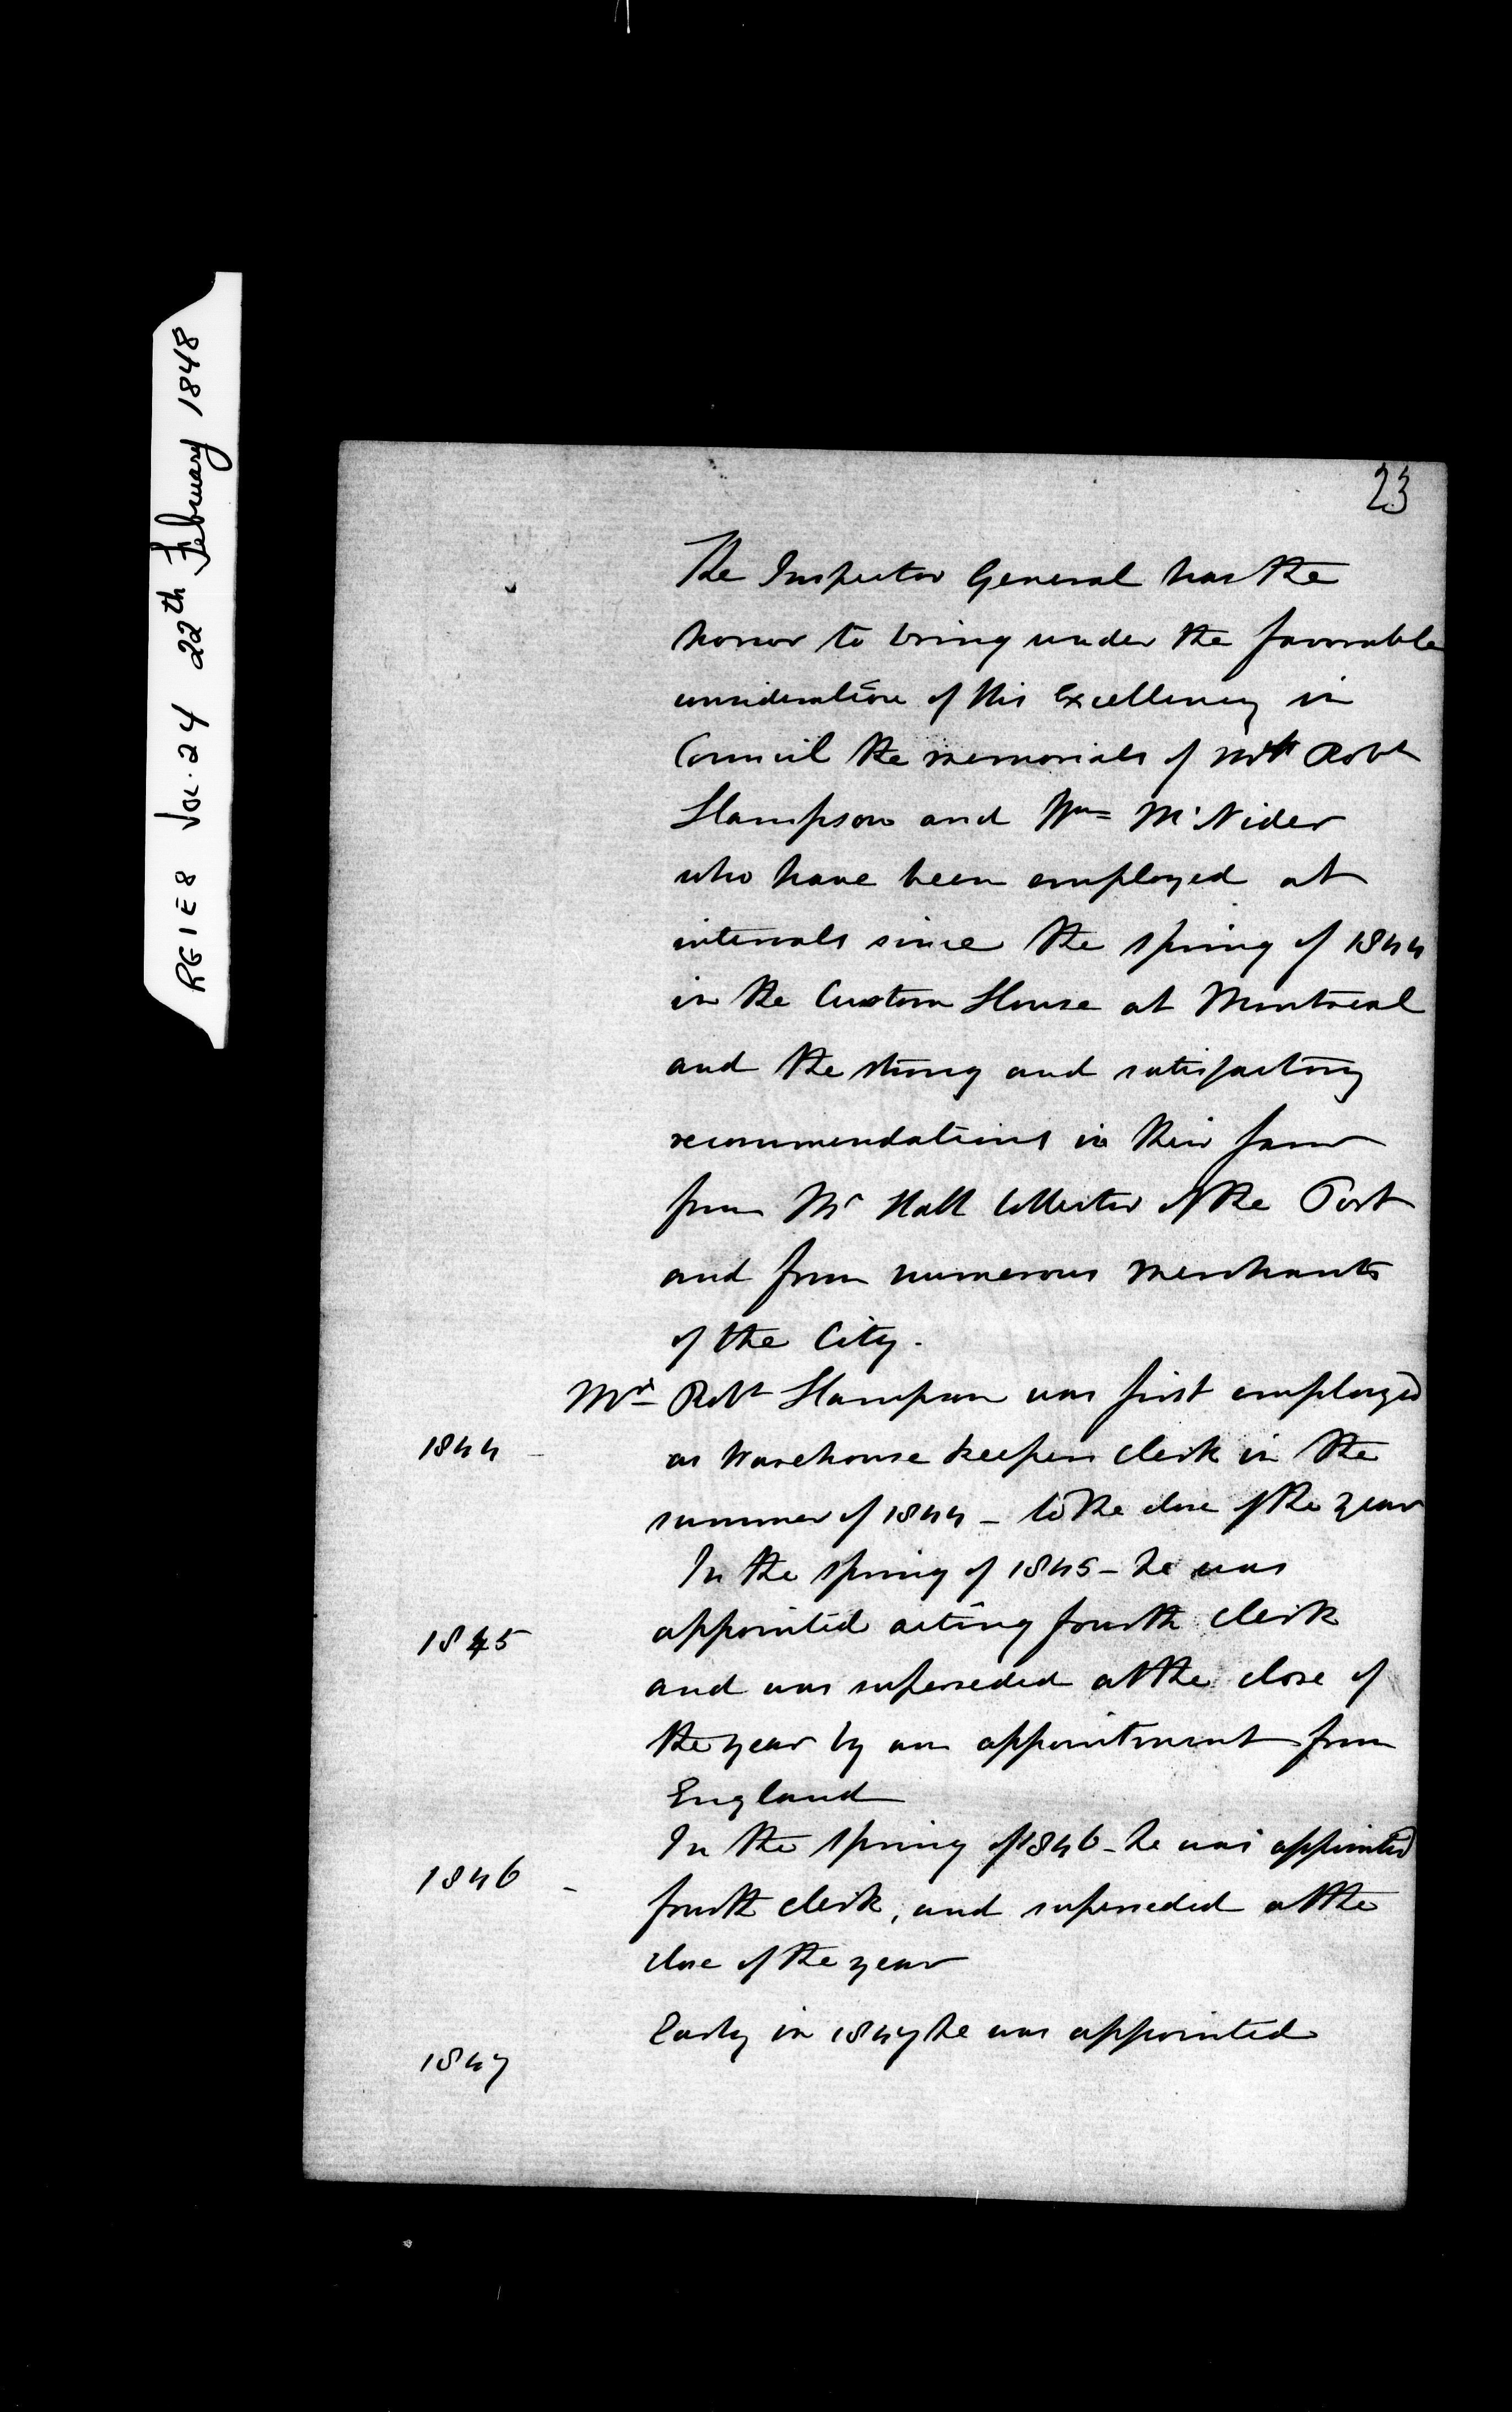 RG1E8 Vol. 24 22th February 1848
23
The Inspector General has the
honor to bring under the favorable
consideration of His Excellency in
Council the memorials of Robt
Hampson and Wm McNider
who have been employed at
intervals since the spring of 1844
in the Custom House at Montreal
and the strong and satisfactory
recommendations in their favor
from Mr Hall Collector of the Port
and from numerous merchants
of the City.
Mr Robt Hampson was first employed
1844 - as Warehouse keepers clerk in the
summer of 1844 - to the close of the year
In the spring of 1845 - he was
1845 appointed acting fourth clerk
and was superseded at the close of
the year by an appointment from
England
In the spring of 1846 - he was appointed
1846 - fourth clerk, and superseded at the
close of the year
Early in 1847 he was appointed
1847